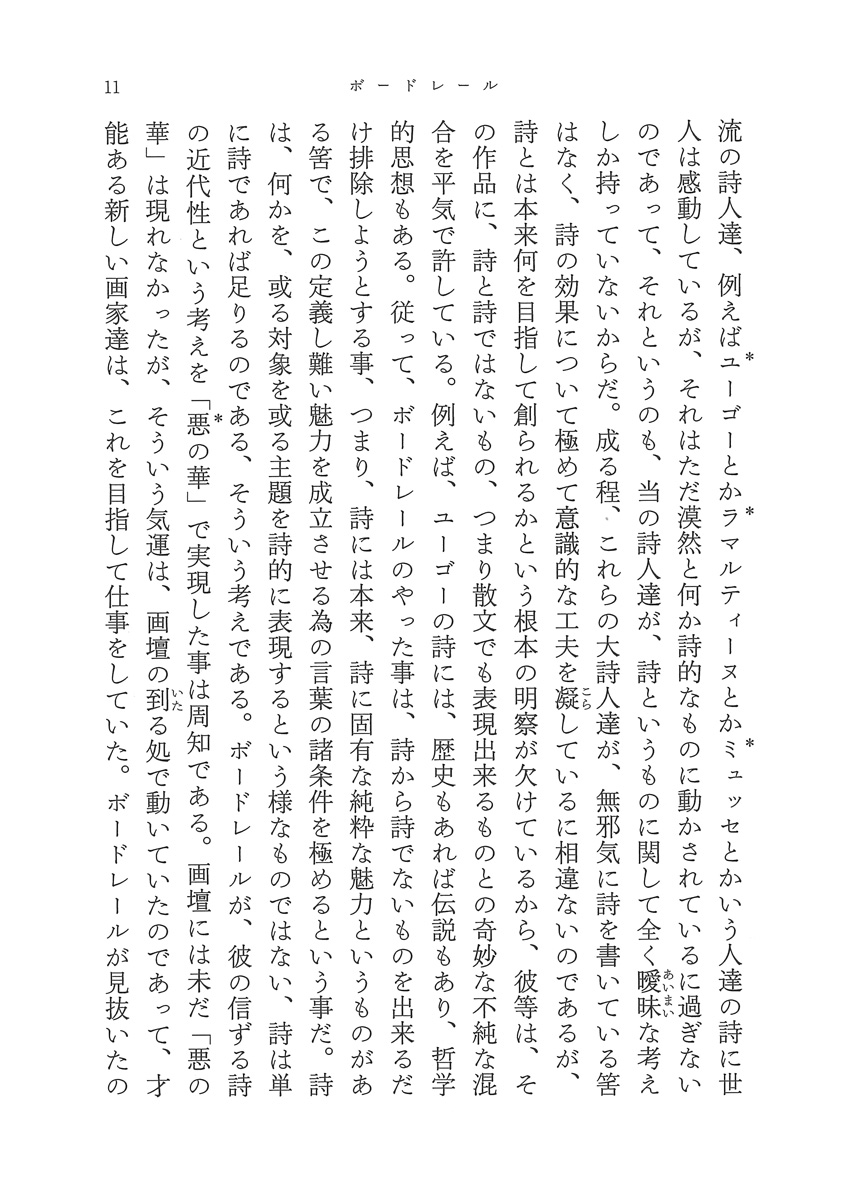 11
ボードレール
流の詩人達、例えば*ユーゴーとか*ラマルティーヌとか*ミュッセとかいう人達の詩に世
人は感動しているが、それはただ漠然と何か詩的なものに動かされているに過ぎない
のであって、それというのも、当の詩人達が、詩というものに関して全く曖昧な考え
あいまい
しか持っていないからだ。成る程、これらの大詩人達が、無邪気に詩を書いている筈
はなく、詩の効果について極めて意識的な工夫を凝しているに相違ないのであるが、
こら
詩とは本来何を目指して創られるかという根本の明察が欠けているから、彼等は、そ
の作品に、詩と詩ではないもの、つまり散文でも表現出来るものとの奇妙な不純な混
合を平気で許している。例えば、ユーゴーの詩には、歴史もあれば伝説もあり、哲学
的思想もある。従って、ボードレールのやった事は、詩から詩でないものを出来るだ
け排除しようとする事、つまり、詩には本来、詩に固有な純粋な魅力というものがあ
る筈で、この定義し難い魅力を成立させる為の言葉の諸条件を極めるという事だ。詩
は、何かを、或る対象を或る主題を詩的に表現するという様なものではない、詩は単
に詩であれば足りるのである、そういう考えである。ボードレールが、彼の信ずる詩
の近代性という考えを「*悪の華」で実現した事は周知である。画壇には未だ「悪の
華」は現れなかったが、そういう気運は、画壇の到る処で動いていたのであって、才
いた
能ある新しい画家達は、これを目指して仕事をしていた。ボードレールが見抜いたの